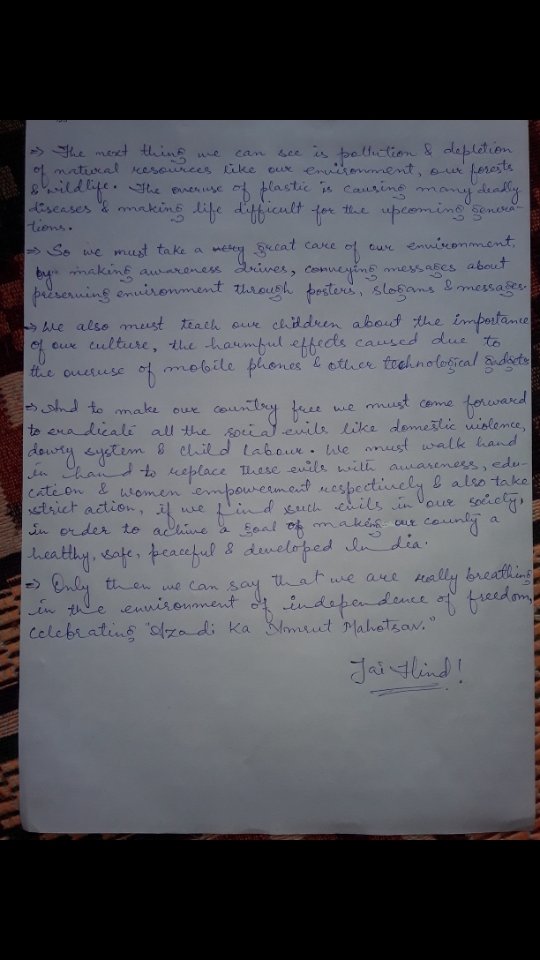 => The next thing we can see is pollution & depletion
of natural resources like our environment, our forests
& wildlife. The overuse of plastic is causing many deadly
diseases & making life difficult for the upcoming genera-
tions.
=> So we must take a very great care of our environment,
by making awareness drives, conveying messages about
preserving environment through posters, slogans & messages.
=> We also must teach our children about the importance
of our culture, the harmful effects caused due to
the overuse of mobile phones & other technological gadgets
=> And to make our country free we must come forward
to eradicate all the social evils like domestic violence,
dowry system & child labour. We must walk hand
in hand to replace these evils with awareness, edu-
cation & women empowerment respectively & also take
strict action, if we find such evils in our society,
in order to achive a goal of making our county a
healthy, safe, peaceful & developed India.
=> Only then we can say that we are really breathing
in the environment of independence of freedom,
celebrating "Azadi Ka Amrut Mahotsav."
Jai Hind!